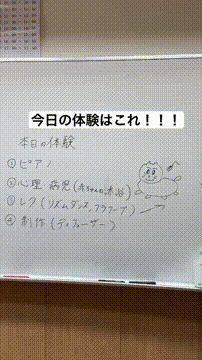 今日の体験はこれ！！！
本日の体験
①ピアノ
②心理 病児(赤ちゃんの沐浴)
③レク(リズムダンス,フラフープ)
④制作(ディフューザー)